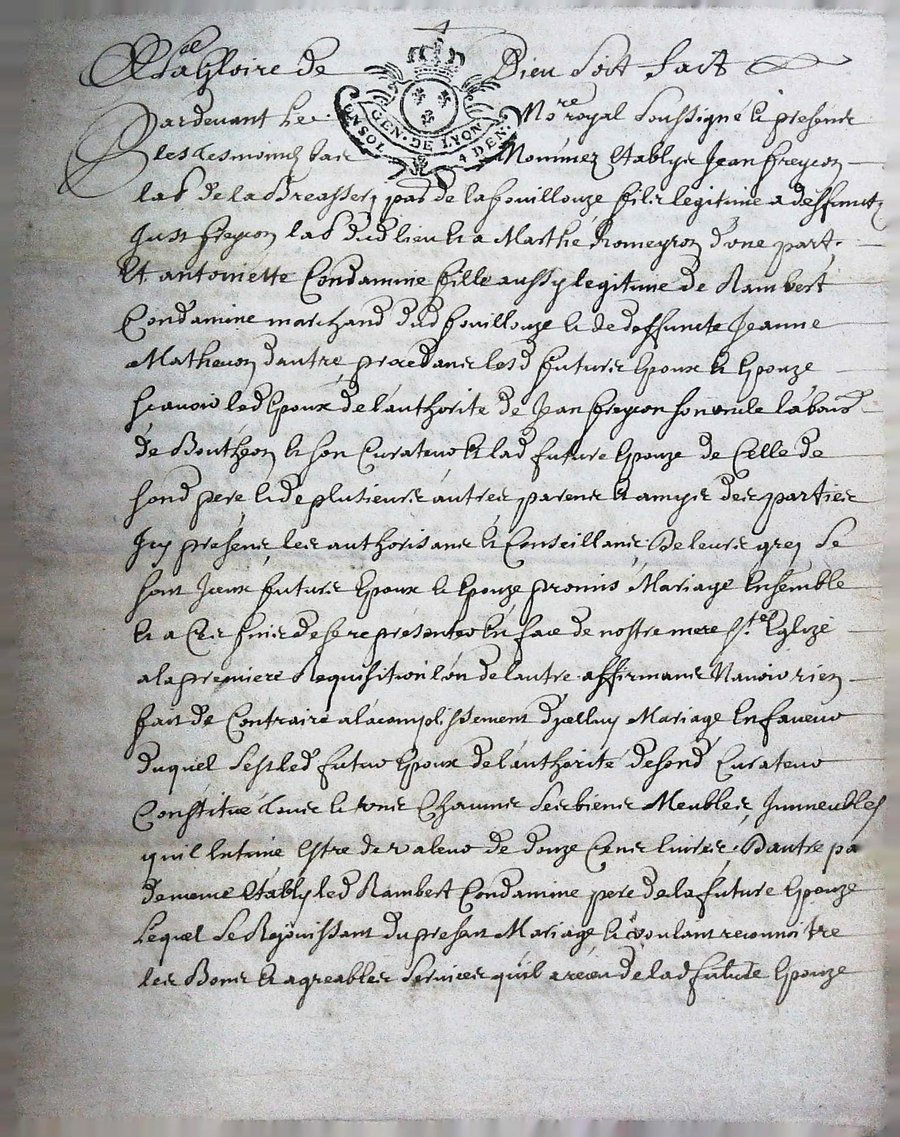 A la Gloire de Dieu Soit fait
GEN. DE LYON
UN SOL 4 DEN.
Pardevant Le No.re royal Soussigné et presents
les tesmoins bas Nommez Establys Jean freycon
lab.r de la Breassery par. de lafouillouze fils legitime a deffunct
Just freycon lab.r dud lieu et a Marthe Romeyron d'une part
Et antoinette Condamine fille aussy legitime de Rambert
Condamine marchand dud fouillouze et de deffuncte Jeanne
Matheuon d'autre, procedants lesd futurs Epoux et Epouze
Scavoir led Epoux de l'authorité de Jean freycon son oncle labour.r
de Bouthéon et son Curateur et lad future Epouze de Celle de
sond pere et de plusieurs autres parens et amys des parties
Icy presents les authorisans et Conseillants de leurs grez Se
sont Jceux futurs Epoux et Epouze promis Mariage Ensemble
et a Ces fins de se representer En face de nostre mere S.te Eglize
a la premiere Requisition l'un de l'autre affirmants N'avoir rien
fait de Contraire a lacomplissement d'jcelluy Mariage En faveur
duquel Sest led futur Epoux de l'authorité desond Curateur
Constitué tous et uns Chacuns Ses biens Meubles, Immeubles
quil Estime Estre de valeur de douze Cents livres, D'autre pa
demême Establyled Rambert Condamine pere de la future Epouze
Lequel Se Rejouissant du present Mariage et voulant reconnoitre
les Bons et agreables Services quil a receu de lad future Epouze